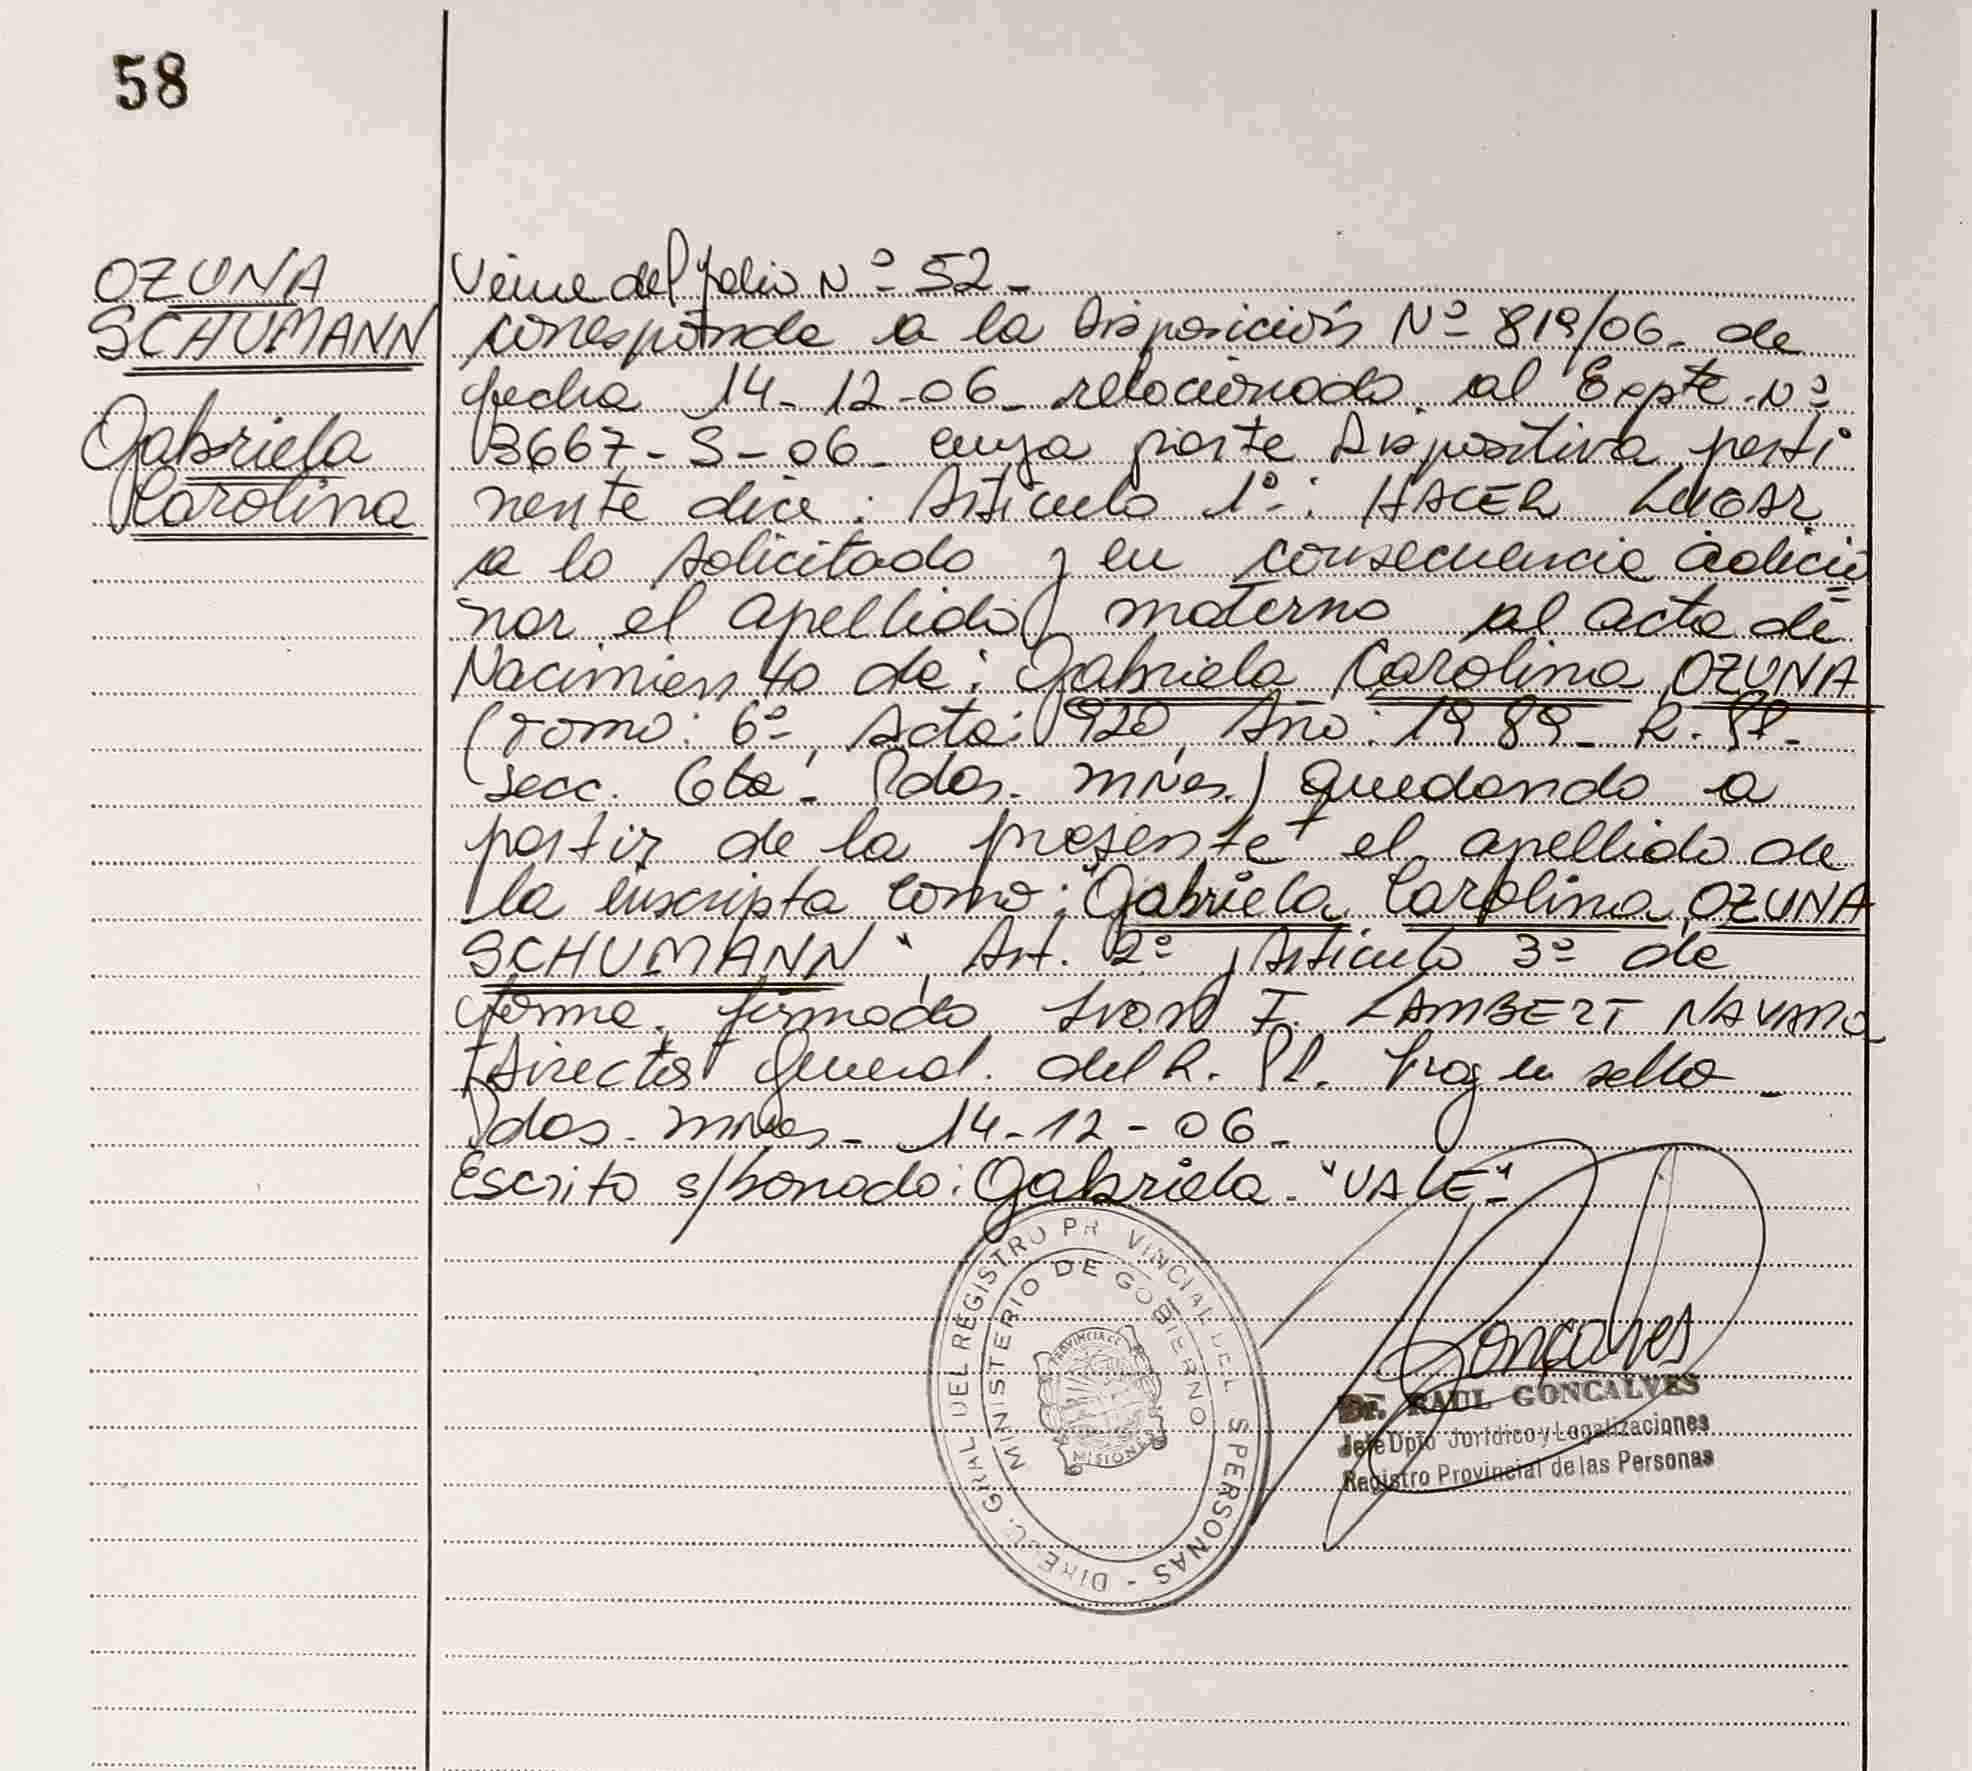 58
OZUNA
SCHUMANN
Gabriela
Carolina
Viene del folio Nº 52_
corresponde a la Disposición Nº 819/06_ de
fecha 14-12-06_ relacionado al Expte. Nº
3667-S-06_ cuya parte Dispositiva perti
nente dice: Artículo 1º: HACER LUGAR
a lo solicitado y en consecuencia adicio
nar el apellido materno al acta de
Nacimiento de: Gabriela Carolina OZUNA
(Tomo: 6º, Acta: 920, Año: 1989_ R.P.
secc. 6ta_ Pdas. Mnes.) quedando a
partir de la presente el apellido de
la inscripta como: "Gabriela Carolina OZUNA
SCHUMANN", Art. 2º y Artículo 3º de
forma, firmado Ivon F. LAMBERT NAVARRO
Director General del R. P. hay un sello_
Pdas. Mnes_ 14-12-06_
Escrito s/borrado: Gabriela. "VALE"_
DIREC. GRAL DEL REGISTRO PR VINCIAL DE L S PERSONAS -
MINISTERIO DE GOBIERNO
PROVINCIA DE
MISIONES
Goncalves
Dr. RAUL GONCALVES
Jefe Dpto Jurídico y Legalizaciones
Registro Provincial de las Personas